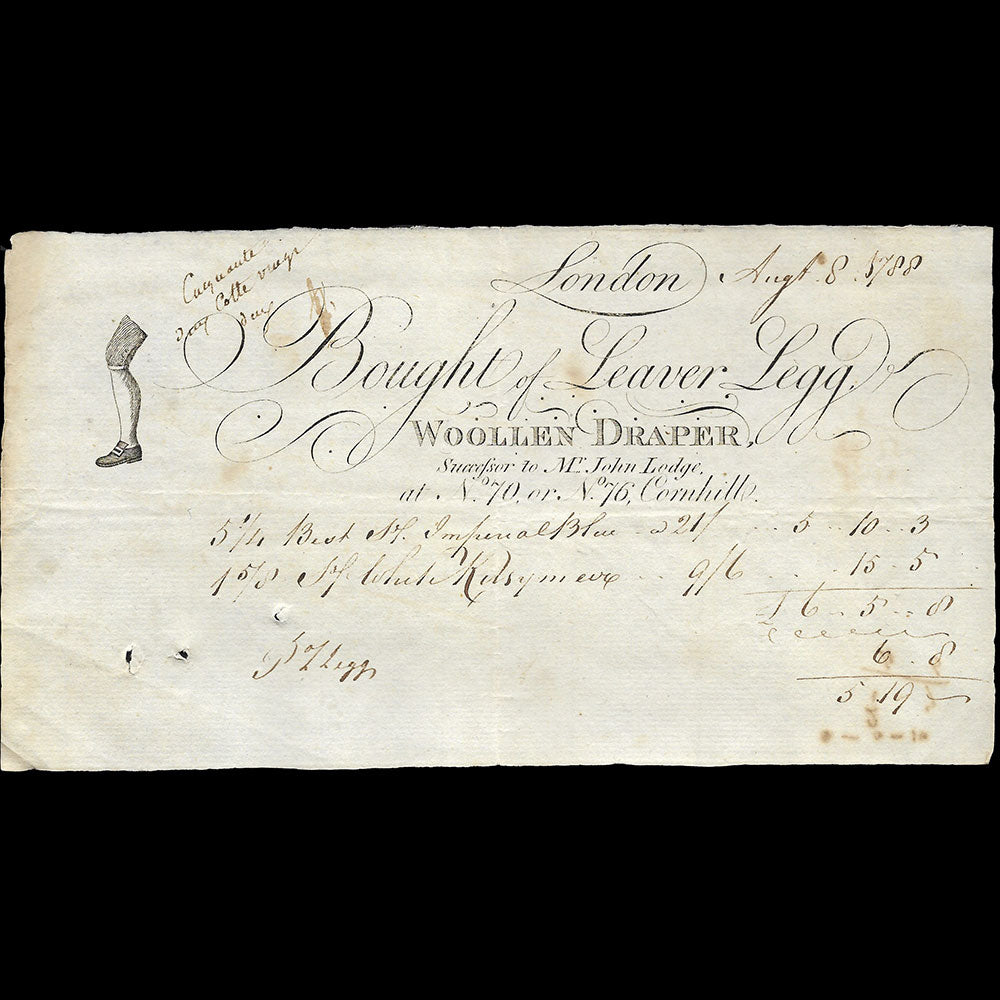 London Augt. 8. 1788
Cinquante
Cotte
Bought of Leaver Legg,
WOOLLEN DRAPER,
Succeſsor to Mr. John Lodge,
at No. 70, or No. 76, Cornhill.
5 1/4 Best Sf. Imperial Blue a 21/ .. 5 .. 10 .. 3
1 5/8 Sf White Kersymere .. 9/6 .... 15 .. 5
£ 6 .. 5 .. 8
6 .. 8
5 .. 19 —
Legg